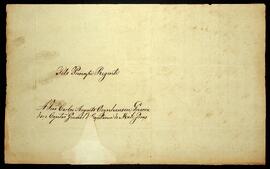 Pelo Principe Regente
A João Carlos Augusto Oeynhausen Gover
dor e Capitão General da Capitania de Mato Grosso